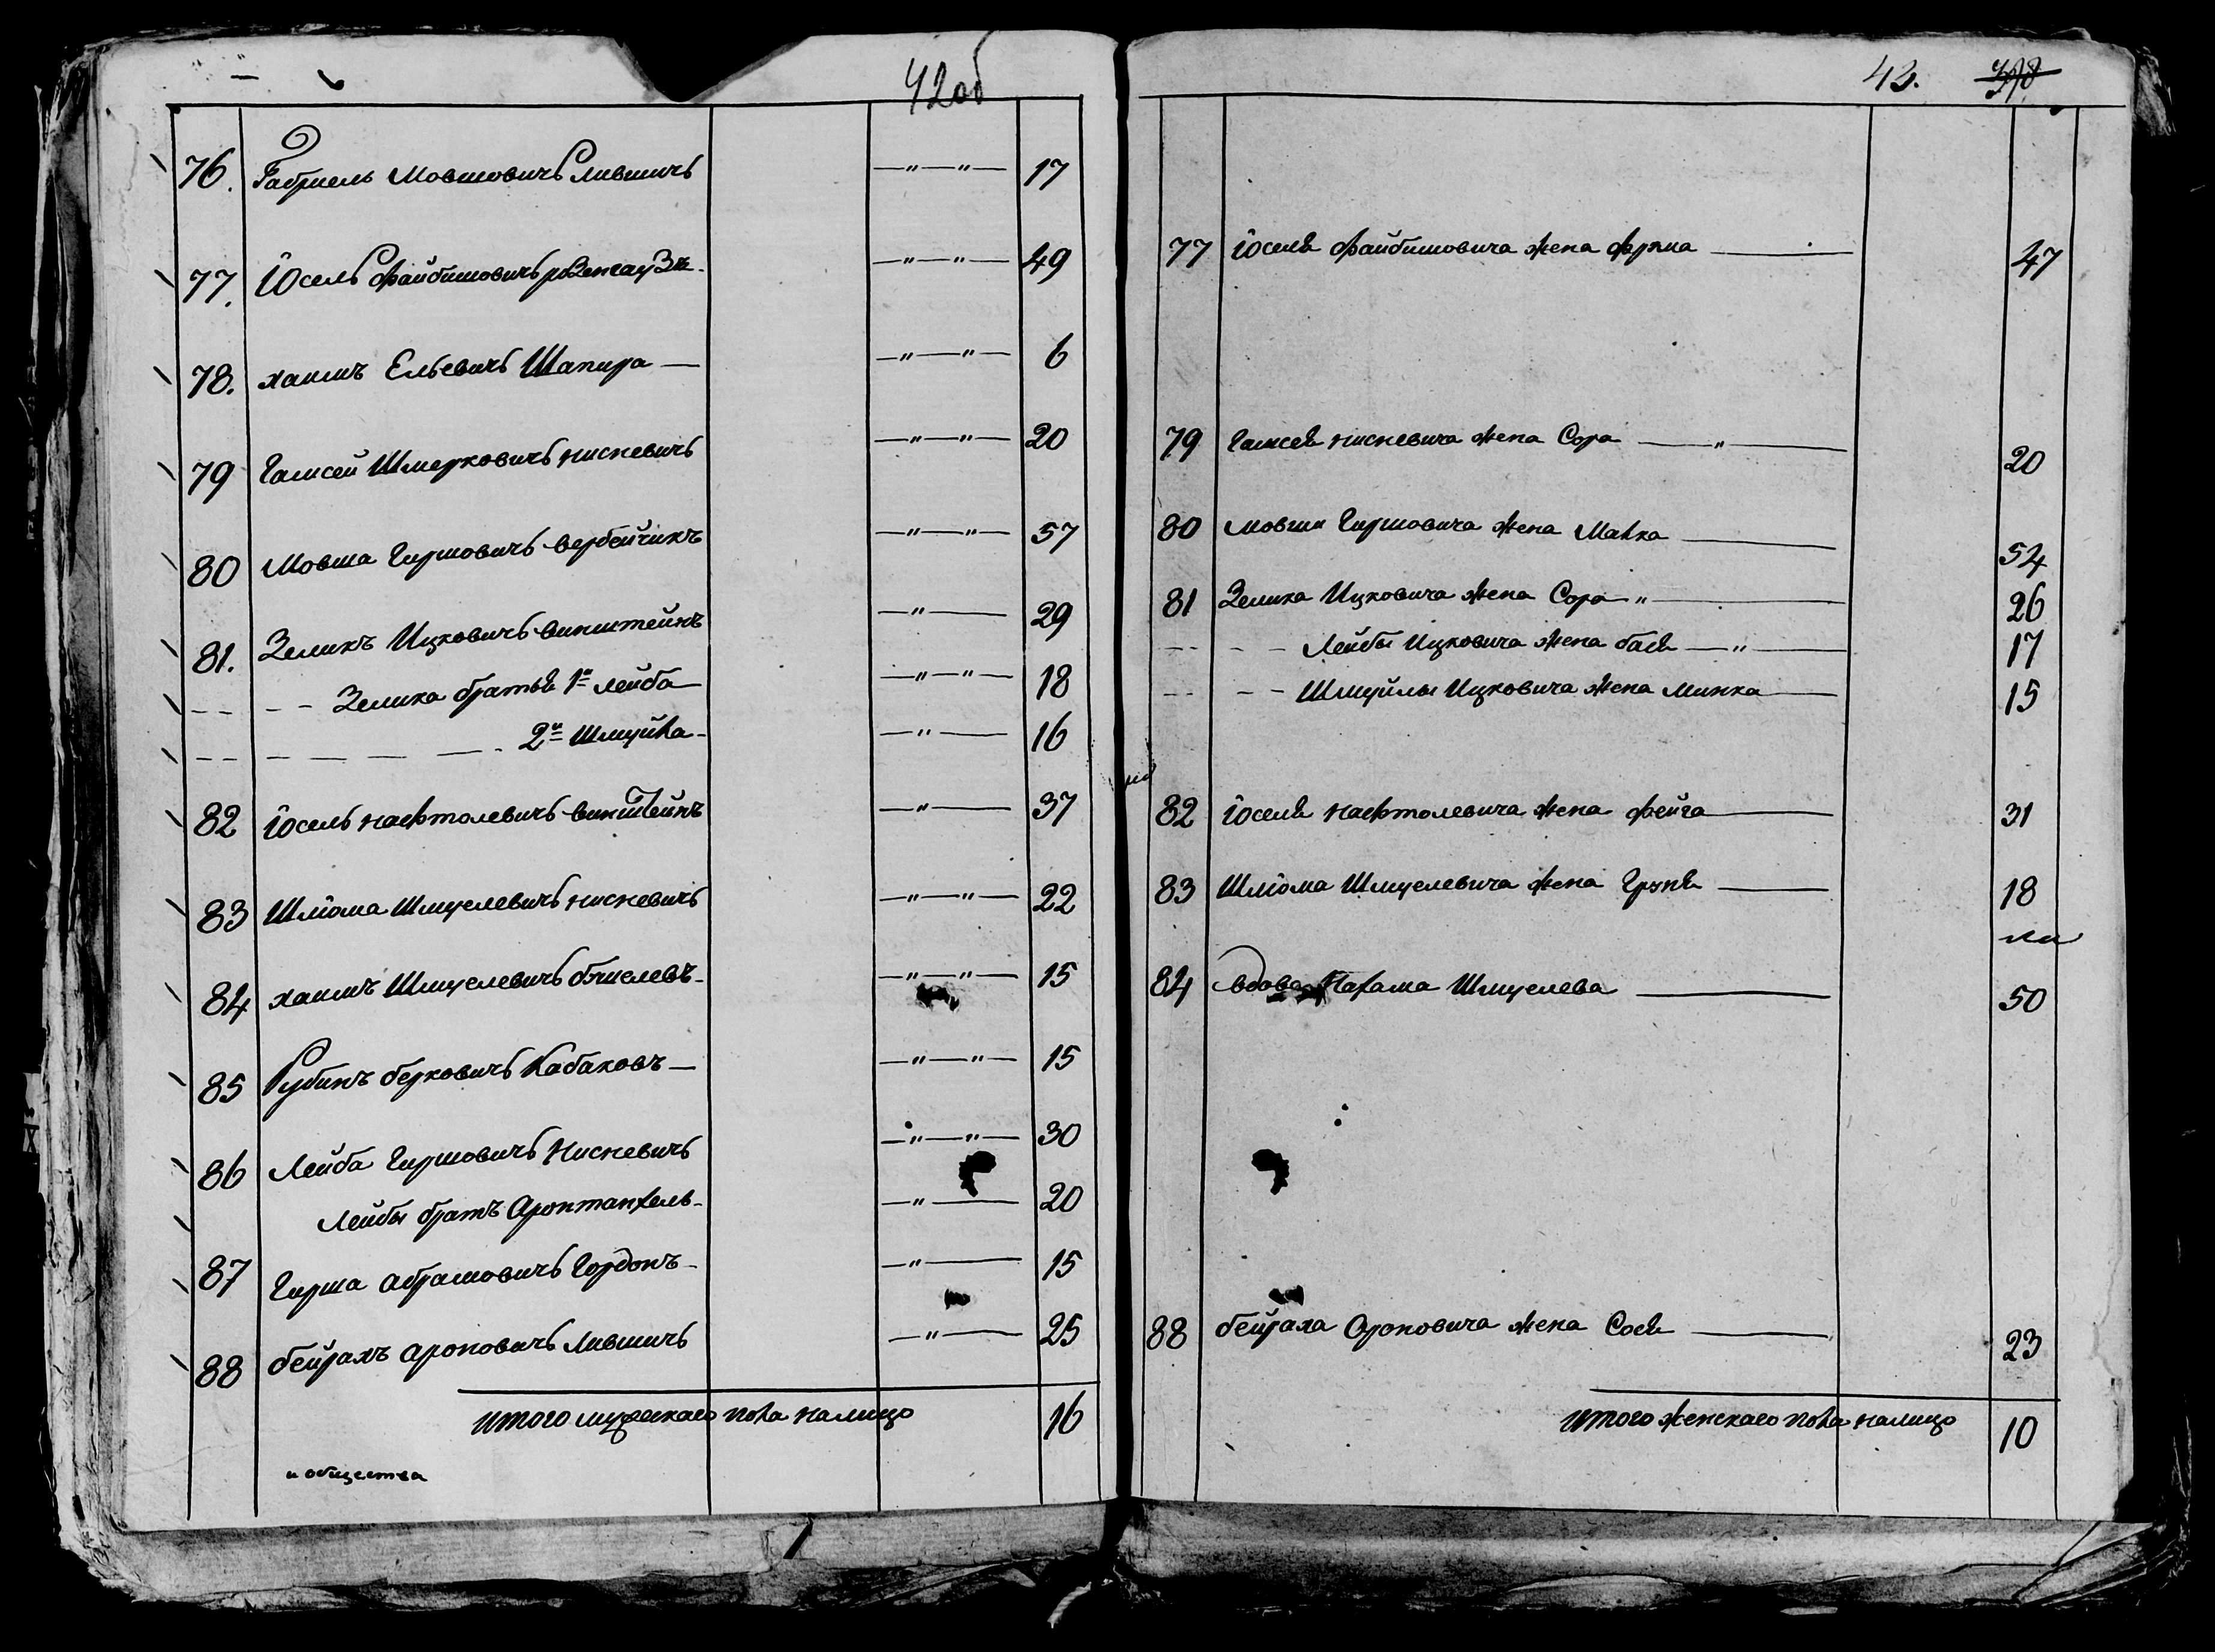 42об
76. Габриель Мовшовичъ Лившичъ —"—"— 17
77. Іосель Файбишовичъ розенгаузъ —"—"— 49
78. хаимъ Ельевичъ Шапира — —"—"— 6
79 Гамсей Шмерковичъ нисневичъ —"—"— 20
80 Мовша Гиршовичъ вербейчикъ —"—"— 57
81. Зеликъ Ицковичъ винштейнъ —"— 29
Зелика братья 1й лейба —"—"— 18
2й Шмуйла —"— 16
82 Іосель нафтолевичъ винштейнъ —"— 37
83 Шліома Шмуелевичъ нисневичъ —"—"— 22
84 хаимъ Шмуелевичъ —"—"— 15
85 Рубинъ берковичъ Кабаковъ — —"—"— 15
86 Лейба Гиршовичъ Нисневичъ —"—"— 30
Лейбы братъ —"— 20
87 Гирша абрамовичъ Гордонъ —"— 15
88 бейрахъ ароновичъ Лившичъ —"— 25
итого мужескаго пола налицо 16
и общества
43.
77 Іоселя Файбишовича жена Фрума 47
79 Гамсея нисневича жена Сора —"— 20
80 мовши Гиршовича жена Малка 54
81 Зелика Ицковича жена Сора "— 26
Лейбы Ицковича жена бася —"— 17
Шмуйлы Ицковича жена Минка 15
82 Іоселя нафтолевича жена фейга 31
83 Шліома Шмуелевича жена Груня 18
84 вдова Нахама Шмуелева 50
88 бейраха Ароновича жена Сося 23
итого женскаго пола налицо 10